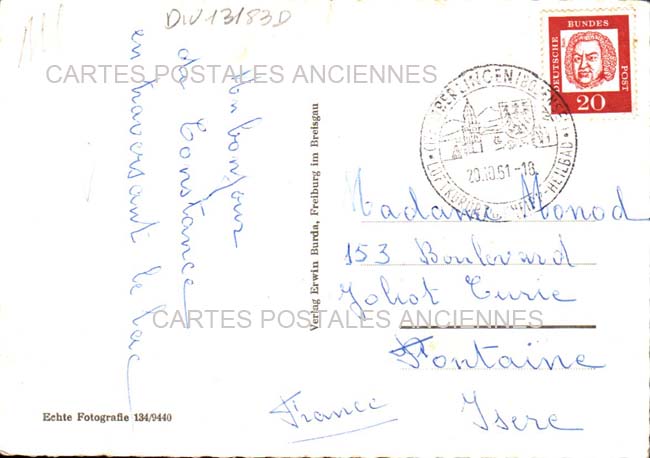 DIV 13183D
Un bonjour
de Constance
en traversant le lac
Verlag Erwin Burda, Freiburg im Breisgau
Echte Fotografie 134/9440
DEUTSCHE
BUNDES
POST
20
ÜBERLINGEN/BODENSEE
20.10.61-18
LUFTKURORT
HEILBAD
Madame Monod
153 Boulevard
Joliot Curie
Fontaine
Isere
France
CARTES POSTALES ANCIENNES
CARTES POSTALES ANCIENNES